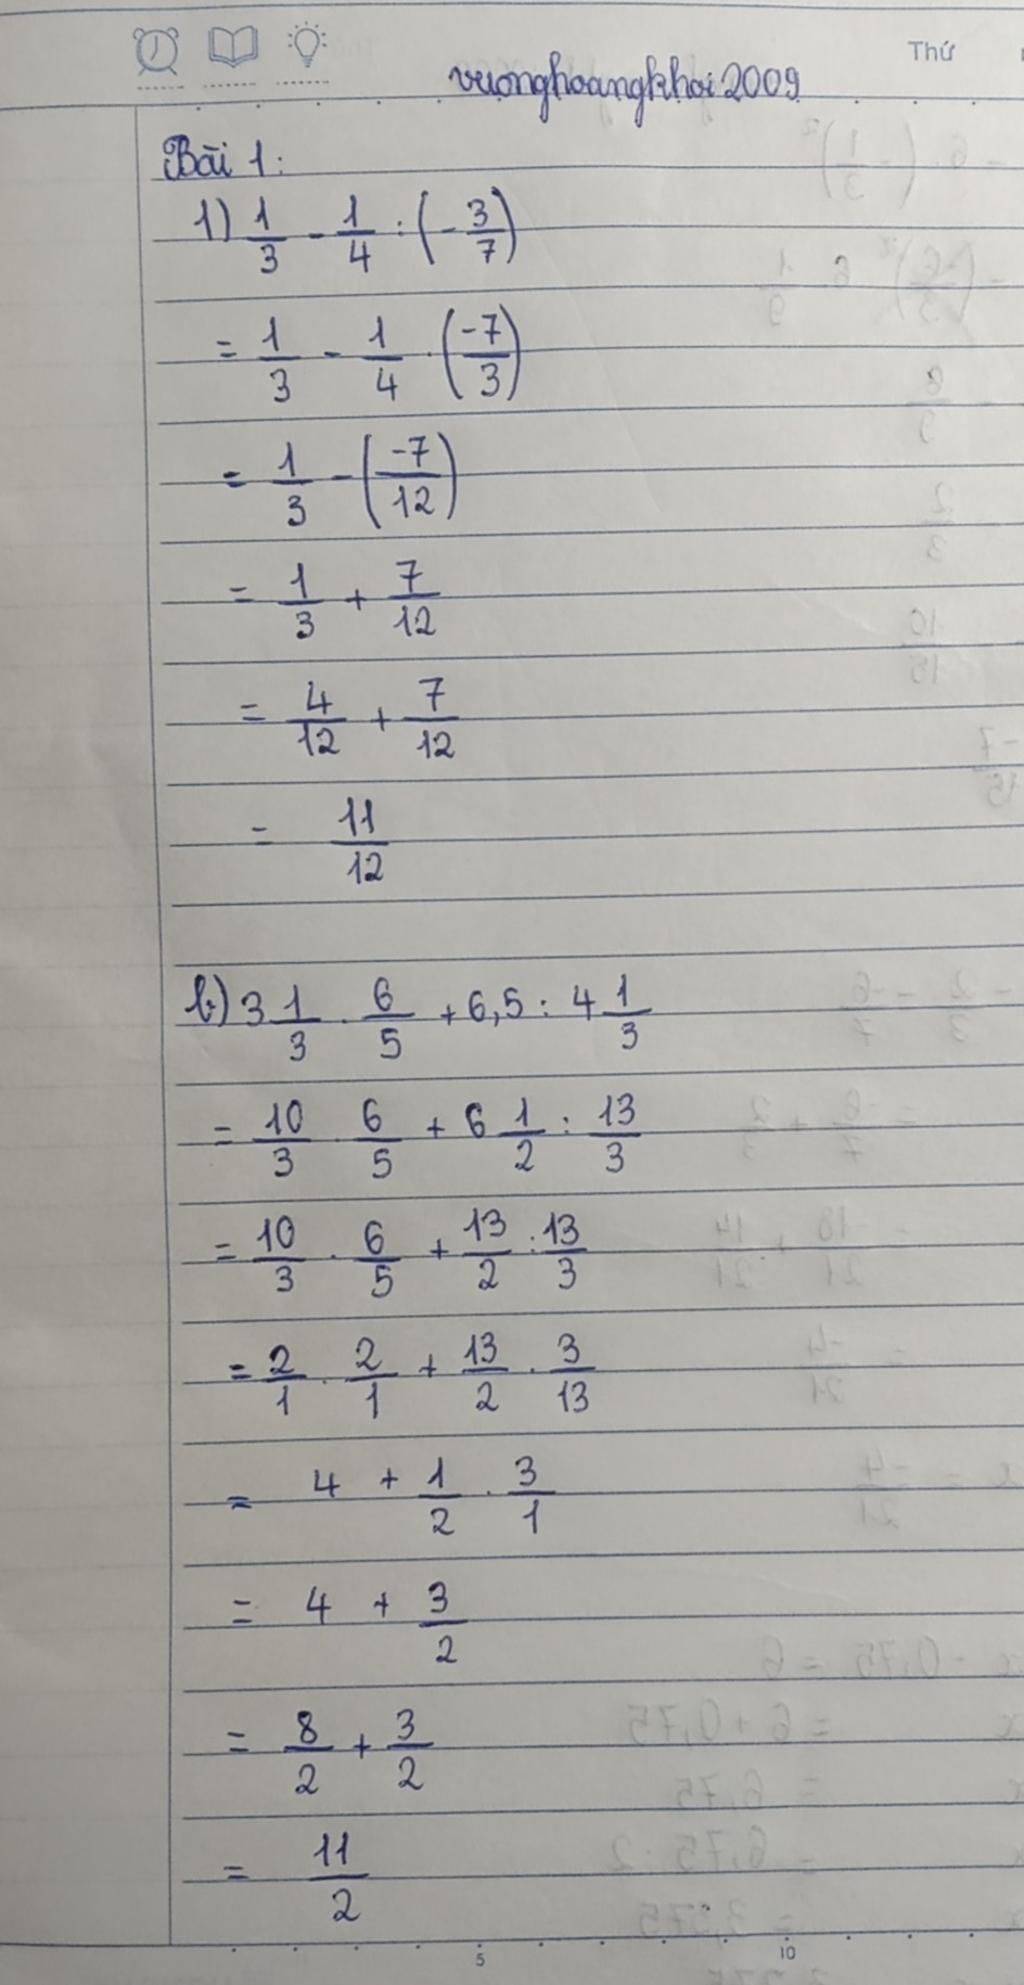 Thứ
vuonghoangkhoi2009
Bài 1:
1) 1/3 - 1/4 : (- 3/7)
= 1/3 - 1/4 . (-7/3)
= 1/3 - (-7/12)
= 1/3 + 7/12
= 4/12 + 7/12
= 11/12
b) 3 1/3 . 6/5 + 6,5 : 4 1/3
= 10/3 . 6/5 + 6 1/2 : 13/3
= 10/3 . 6/5 + 13/2 : 13/3
= 2/1 . 2/1 + 13/2 . 3/13
= 4 + 1/2 . 3/1
= 4 + 3/2
= 8/2 + 3/2
= 11/2
5 10